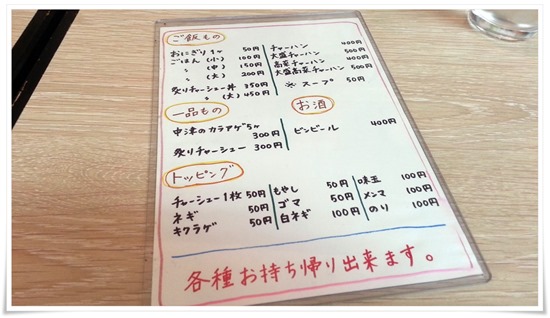 ご飯もの
おにぎり1ヶ 50円
ごはん(小) 100円
〃 (中) 150円
〃 (大) 200円
炙りチャーシュー丼 350円
〃 (大) 450円
チャーハン 400円
大盛チャーハン 500円
高菜チャーハン 400円
大盛高菜チャーハン 500円
※スープ 50円
一品もの
中津のカラアゲ5ヶ 300円
炙りチャーシュー 300円
お酒
ビンビール 400円
トッピング
チャーシュー1枚 50円
ネギ 50円
キクラゲ 50円
もやし 50円
ゴマ 50円
白ネギ 100円
味玉 100円
メンマ 100円
のり 100円
各種お持ち帰り出来ます。